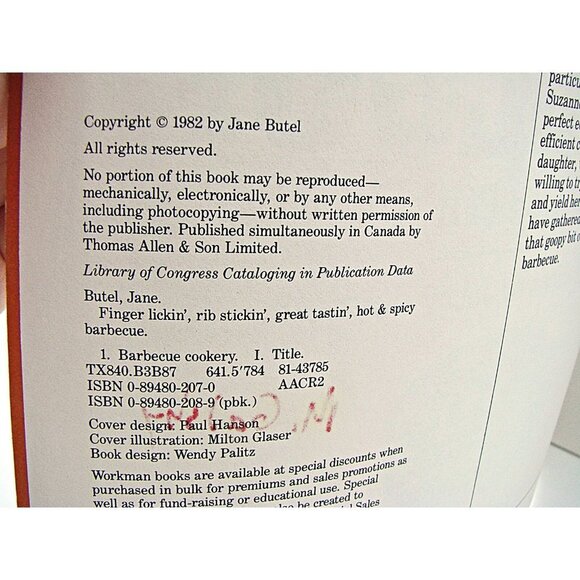 Copyright © 1982 by Jane Butel
All rights reserved.
No portion of this book may be reproduced—
mechanically, electronically, or by any other means,
including photocopying—without written permission of
the publisher. Published simultaneously in Canada by
Thomas Allen & Son Limited.
Library of Congress Cataloging in Publication Data
Butel, Jane.
Finger lickin', rib stickin', great tastin', hot & spicy
barbecue.
1. Barbecue cookery. I. Title.
TX840.B3B87 641.5'784 81-43785
ISBN 0-89480-207-0 AACR2
ISBN 0-89480-208-9 (pbk.)
Cover design: Paul Hanson
Cover illustration: Milton Glaser
Book design: Wendy Palitz
Workman books are available at special discounts when
purchased in bulk for premiums and sales promotions as
well as for fund-raising or educational use. Special
also be created to
Sales
particu
Suzann
perfect e
efficient c
daughter,
willing to tr
and yield her
have gathered
that goopy bit o
barbecue.